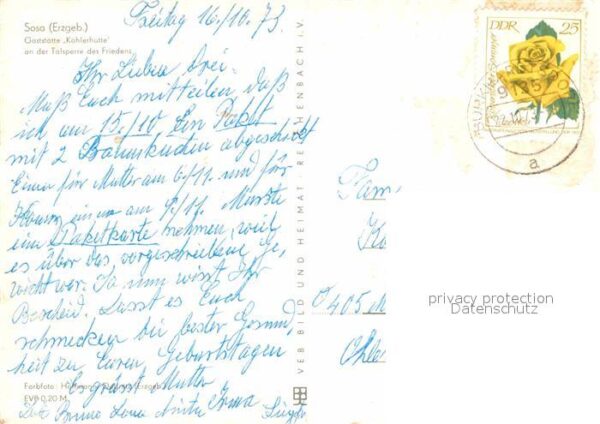 Sosa (Erzgeb.)
Gaststätte „Köhlerhütte"
an der Talsperre des Friedens
Freitag 16/10. 73
Ihr Lieben drei.
Muß Euch mitteilen daß
ich am 15./10. Ein Paket
mit 2 Baumkuchen abgeschickt
Einen für Mutter am 6./11. und für
einen am 9./11. Mußte
eine Paketkarte nehmen, weil
es über das vorgeschriebene Ge,
wicht war. So nun wisst Ihr
Bescheid. Lasst es Euch
schmecken bei bester Gesund,
heit zu Euren Geburtstagen
Es grüsst Mutter
Bruno Erma
Farbfoto:
EVP 0,20 M
VEB BILD UND HEIMAT REICHENBACH I. V.
DDR 25
a
Fam
O 405
privacy protection
Datenschutz